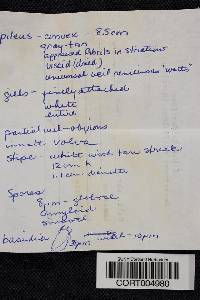 pileus - convex 8.5cm
gray-tan
appressed fibrils in striations
viscid (dried)
universal veil remnants "warts"
gills - finely attached
white
entire
partial veil - obvious
volva
stipe - white w/ tan streak
12 cm h
1.1 cm diameter
Spores
8 µm - globose
amyloid
smooth
basidia
width - 10µm
SUNY Cortland Herbarium
CORT004980